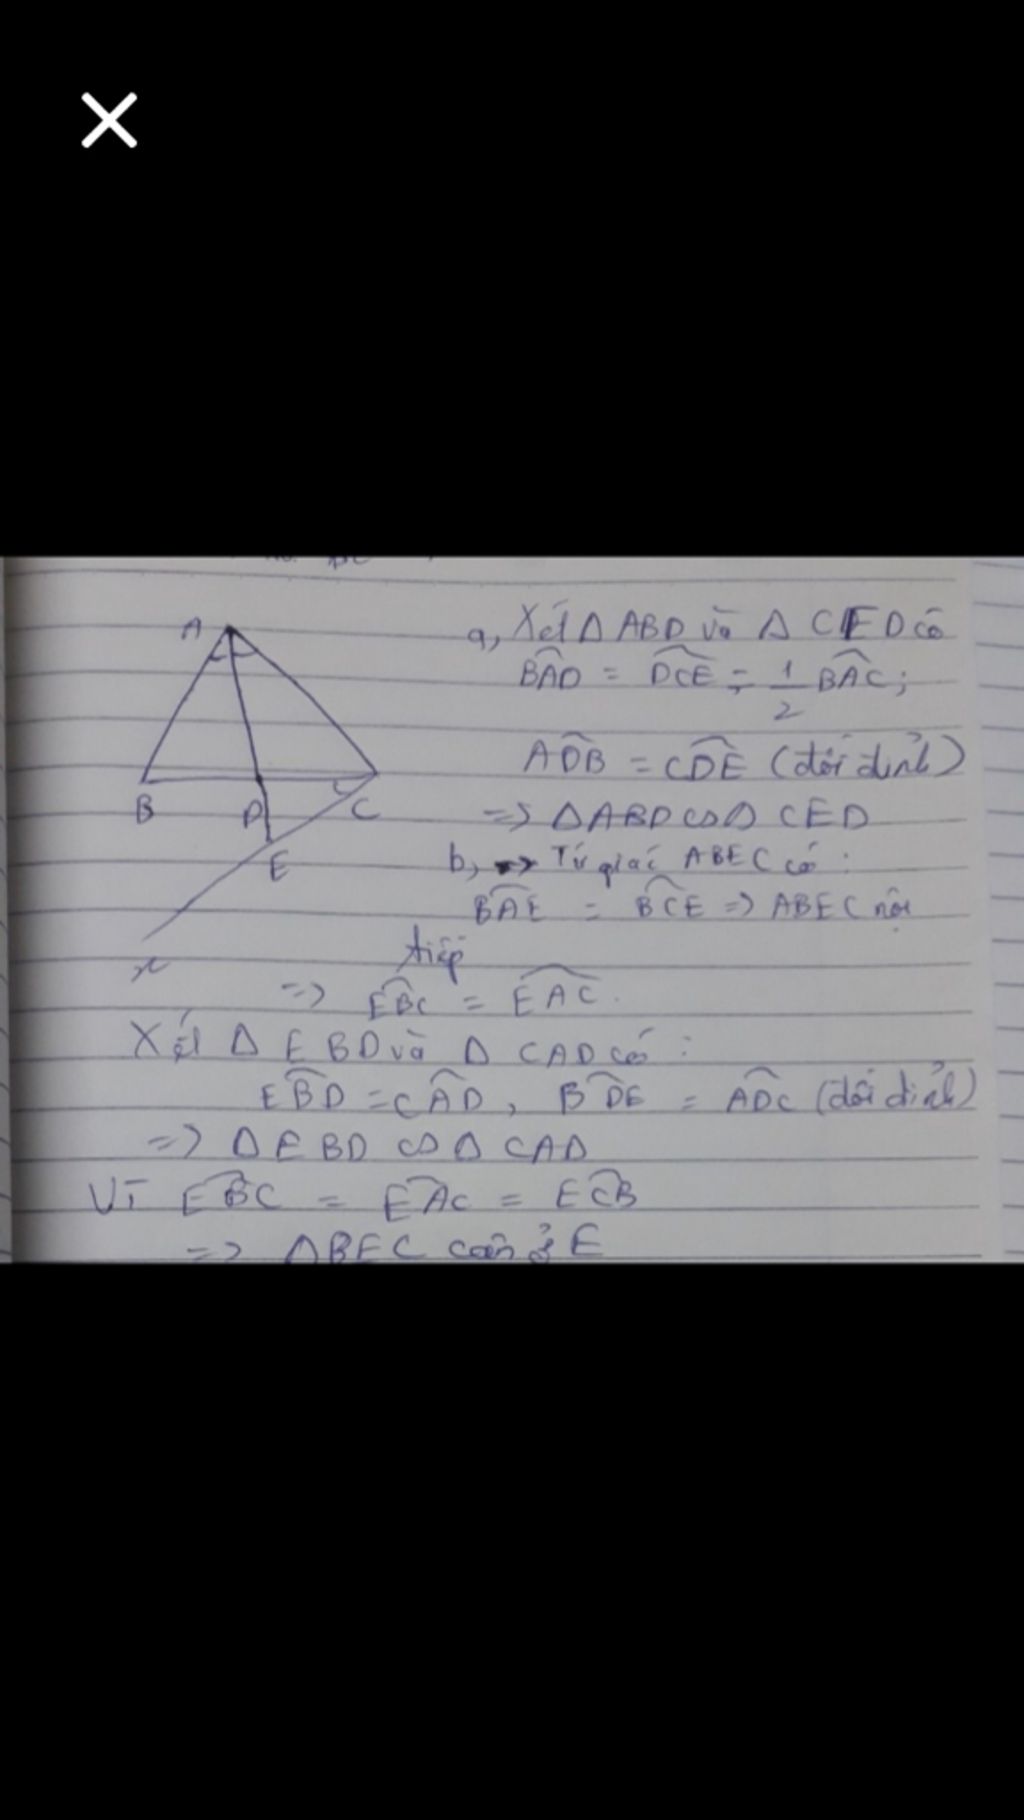 A
B
D
C
E
x
a, Xét Δ ABD và Δ CED có
BAD = DCE = 1/2 BAC;
ADB = CDE (đối đỉnh)
=> ΔABD ∽ Δ CED
b, => Tứ giác ABEC có :
BAE = BCE => ABEC nội
tiếp
=> EBC = EAC.
Xét Δ EBD và Δ CAD có :
EBD = CAD, BDE = ADC (đối đỉnh)
=> Δ EBD ∽ Δ CAD
Vì EBC = EAC = ECB
=> ΔBEC cân ở E